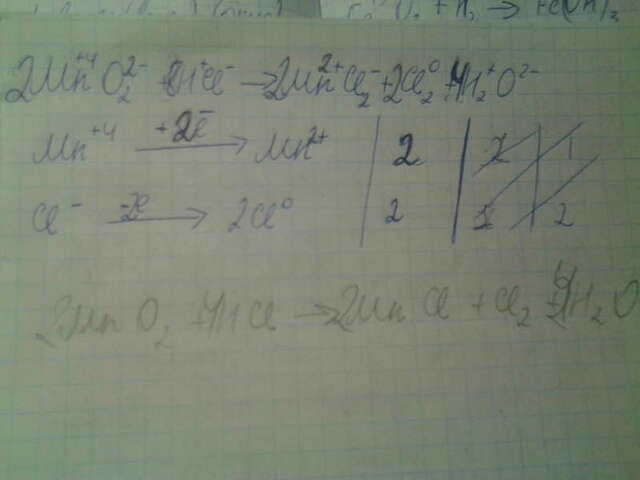 + H₂ → Fe(OH)₂
2Mn⁺⁴O₂²⁻ 8H⁺Cl⁻ → 2Mn²⁺Cl₂⁻ + 2Cl₂⁰ + 4H₂⁺O²⁻
Mn⁺⁴ +2e̅ → Mn²⁺ | 2 | 2 | 1
Cl⁻ -2e → 2Cl⁰ | 2 | 1 | 2
2MnO₂ + 4HCl → 2MnCl + Cl₂ + H₂O